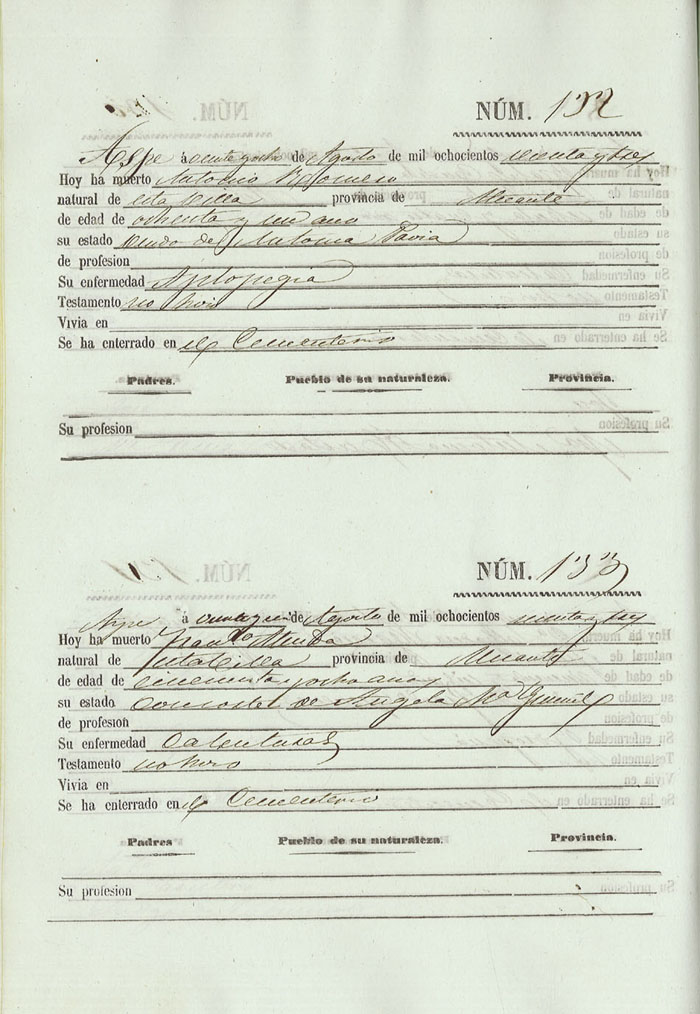 NÚM. 132
Aspe á veinte y ocho de Agosto de mil ochocientos sesenta y tres
Hoy ha muerto Antonio Romero
natural de esta villa provincia de Alicante
de edad de ochenta y un año
su estado viudo de Antonia Pavia
de profesion
Su enfermedad Aplopegia
Testamento no hizo
Vivia en
Se ha enterrado en el Cementerio
Padres. Pueblo de su naturaleza. Provincia.
Su profesion
NÚM. 133
Aspe á de Agosto de mil ochocientos sesenta y tres
Hoy ha muerto
natural de esta villa provincia de Alicante
de edad de cincuenta y ocho años
su estado consorte de Angela Mª
de profesion
Su enfermedad Calenturas
Testamento no hizo
Vivia en
Se ha enterrado en el Cementerio
Padres Pueblo de su naturaleza. Provincia.
Su profesion